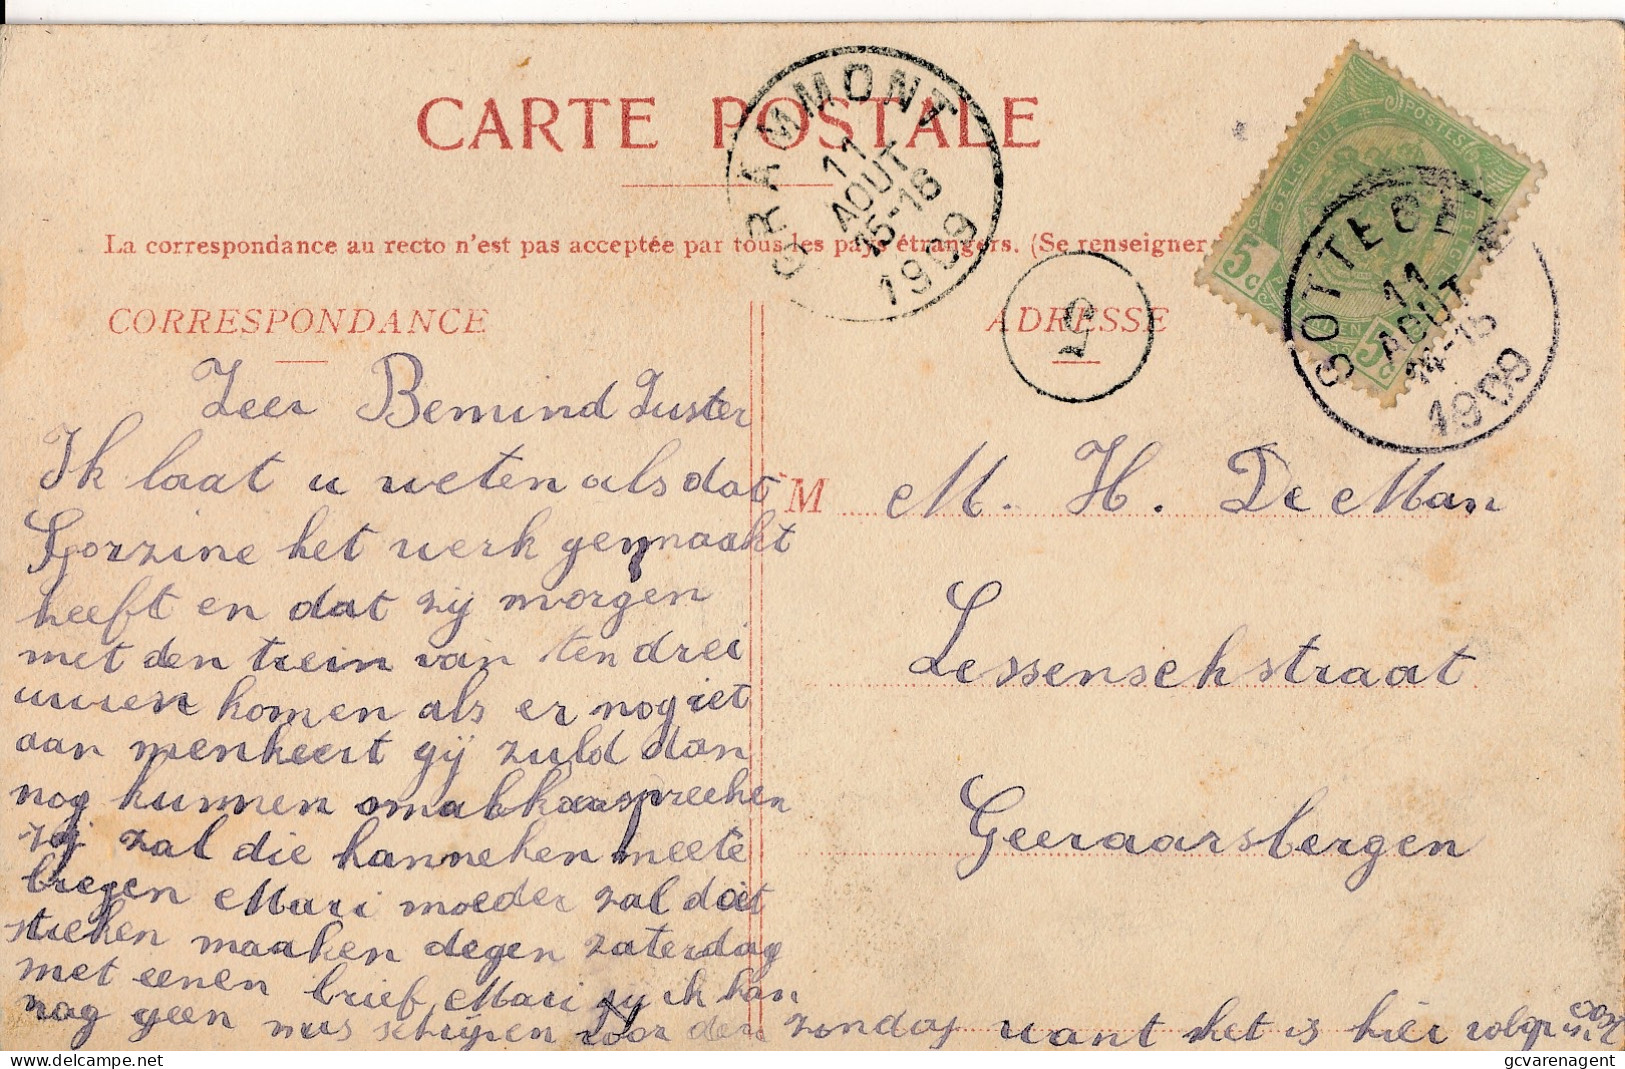 CARTE POSTALE
GRAMMONT
11
AOUT
15-16
1909
BELGIQUE POSTES BELGIË
5c 5c
SOTTEGEM
11
AOUT
14-15
1909
La correspondance au recto n'est pas acceptée par tous les pays étrangers. (Se renseigner
CORRESPONDANCE
ADRESSE
5
Zeer Bemind Zuster
Ik laat u weten als dat
het werk gemaakt
heeft en dat zij morgen
met den trein van ten drei
uuren komen als er nog iet
aan menkeert gij zuld dan
nog kunnen
zij zal die kanneken meete
bregen Mari moeder zal dat
stieken maaken degen zaterdag
met eenen brief Mari ik kan
nog geen mus schijpen voor den zondag want het is hier
M M. H. De Man
Lessensehstraat
Geeraarsbergen
delcampe.net
gcvarenagent